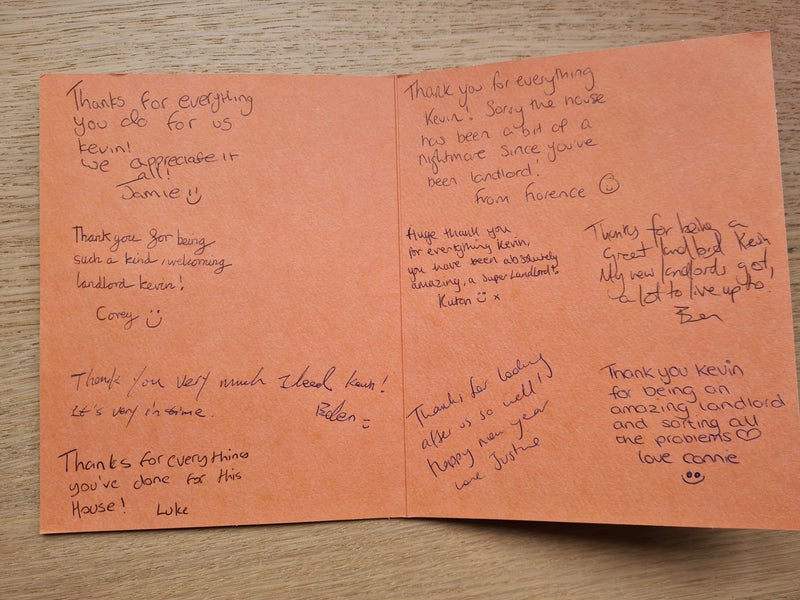 Thanks for everything
you do for us
Kevin!
we appreciate it
all!
Jamie
Thankyou for being
such a kind, welcoming
landlord Kevin!
Corey
Thank you very much
It's very
Eden
Thanks for everything
you've done for this
House! Luke
Thank you for everything
Kevin! Sorry the house
has been a bit of a
nightmare since you've
been landlord!
from florence
Huge thank you
for everything Kevin,
you have been absolutely
amazing, a super landlord!
x
Thanks for being a
Great landlord Kevin
My new landlords got,
a lot to live up to.
Ben
Thanks for looking
after us so well!
happy new year
love Justine
Thank you Kevin
for being an
amazing landlord
and sorting all
the problems
love connie